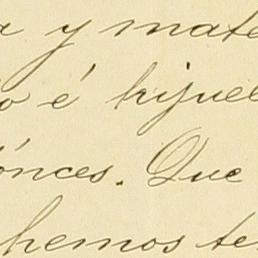 a y mate
o é hijuel
ónces. Que
hemos te